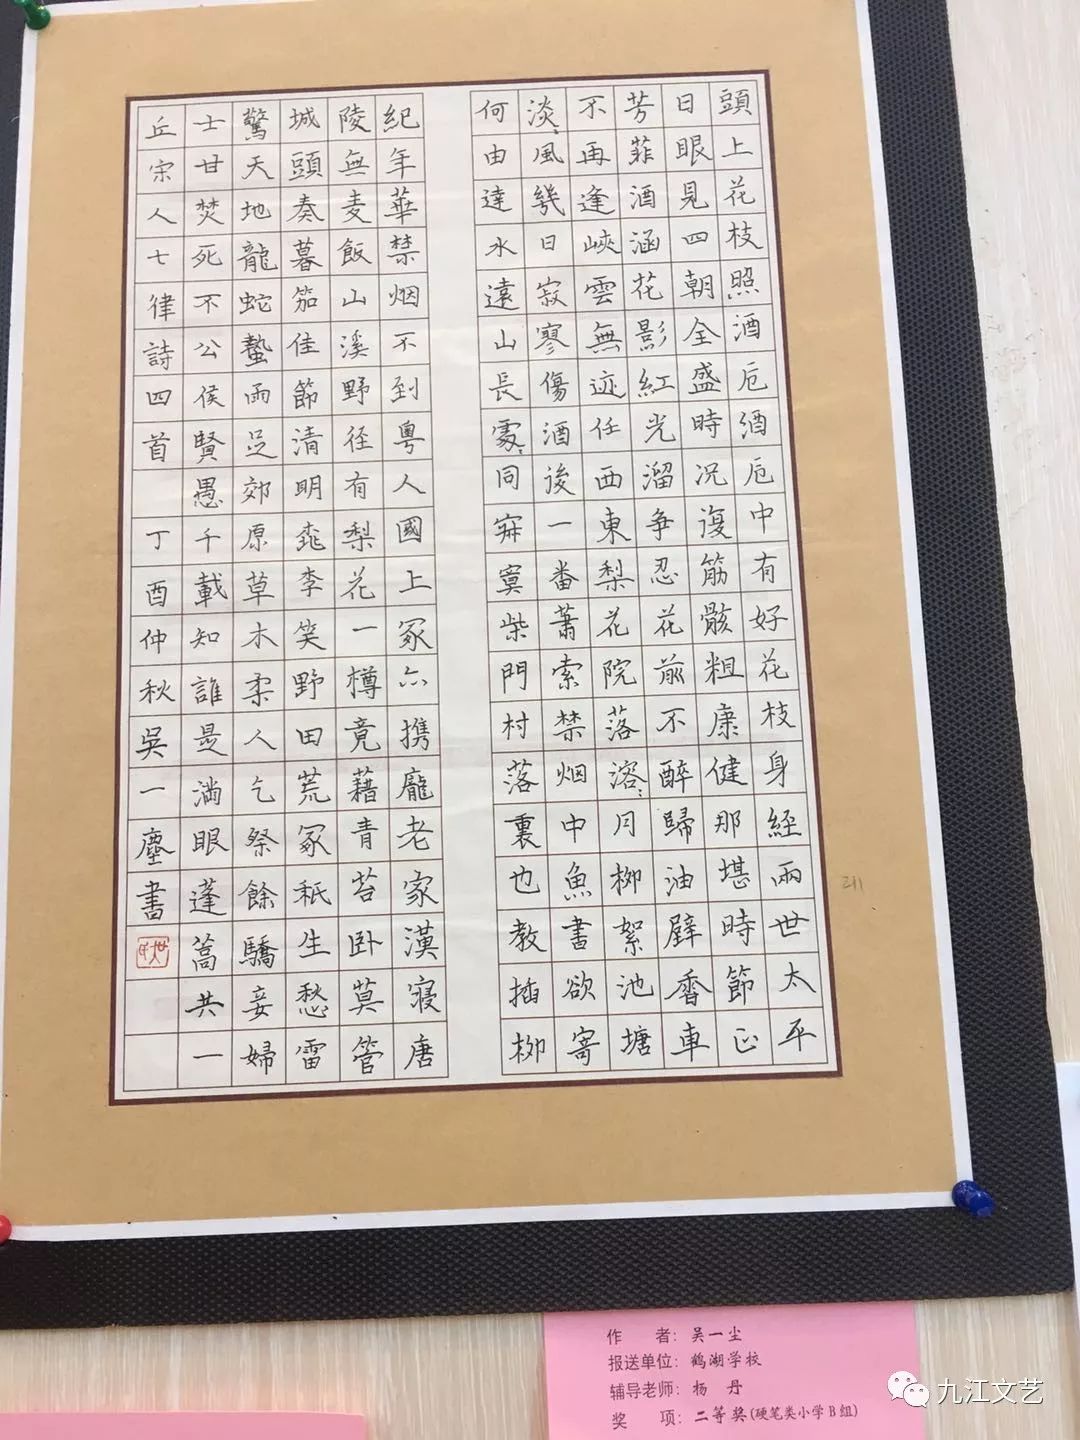 頭上花枝照酒卮酒卮中有好花枝身經兩世太平
日眼見四朝全盛時況復筋骸粗康健那堪時節正
芳菲酒涵花影紅光溜爭忍花前不醉歸油壁香車
不再逢峽雲無迹任西東梨花院落溶〻月柳絮池塘
淡〻風幾日寂寥傷酒後一番蕭索禁烟中魚書欲寄
何由達水遠山長處〻同寂寞柴門村落裏也教插柳
紀年華禁烟不到粵人國上冢亦携龐老家漢寢唐
陵無麦飯山溪野径有梨花一樽竟藉青苔卧莫管
城頭奏暮笳佳節清明桃李笑野田荒冢秖生愁雷
驚天地龍蛇蟄雨足郊原草木柔人乞祭餘驕妾婦
士甘焚死不公侯賢愚千載知誰是滿眼蓬蒿共一
丘宋人七律詩四首 丁酉仲秋吳一塵書
作 者：吴一尘
报送单位：鹤湖学校
辅导老师：杨 丹
奖 项：二等奖(硬笔类小学B组)
九江文艺